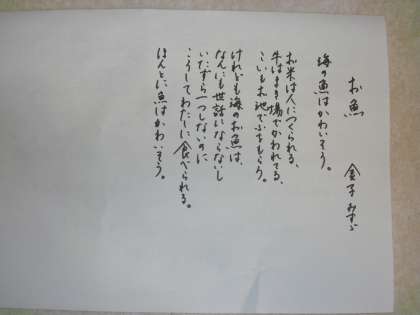 お魚
金子みすゞ
海の魚はかわいそう。
お米は人につくられる、
牛はまき場でかわれてる、
こいもお池でふをもらう。
けれども海のお魚は、
なんにも世話にならないし
いたずら一つしないのに
こうしてわたしに食べられる。
ほんとに魚はかわいそう。